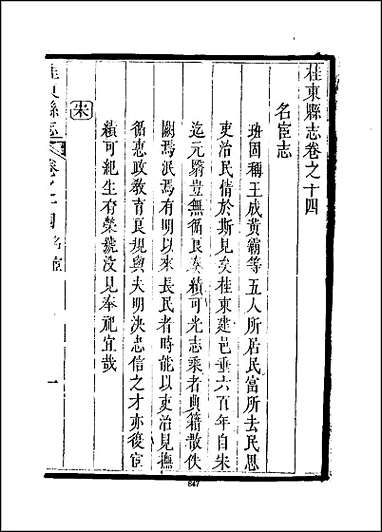 桂東縣志卷之十四
名宦志
班固稱王成黃霸等五人所居民富所去民思
吏治民情於斯見矣桂東建邑垂六百年自宋
迄元豈無循良奏績可光志乘者典籍散佚
闕焉泯焉有明以來長民者時能以吏治見撫
循惠政教育良規與夫明決忠信之才亦復宦
績可紀生有榮號没見奉祀宜哉
宋
桂東縣志
卷之十四 名宦
一
847